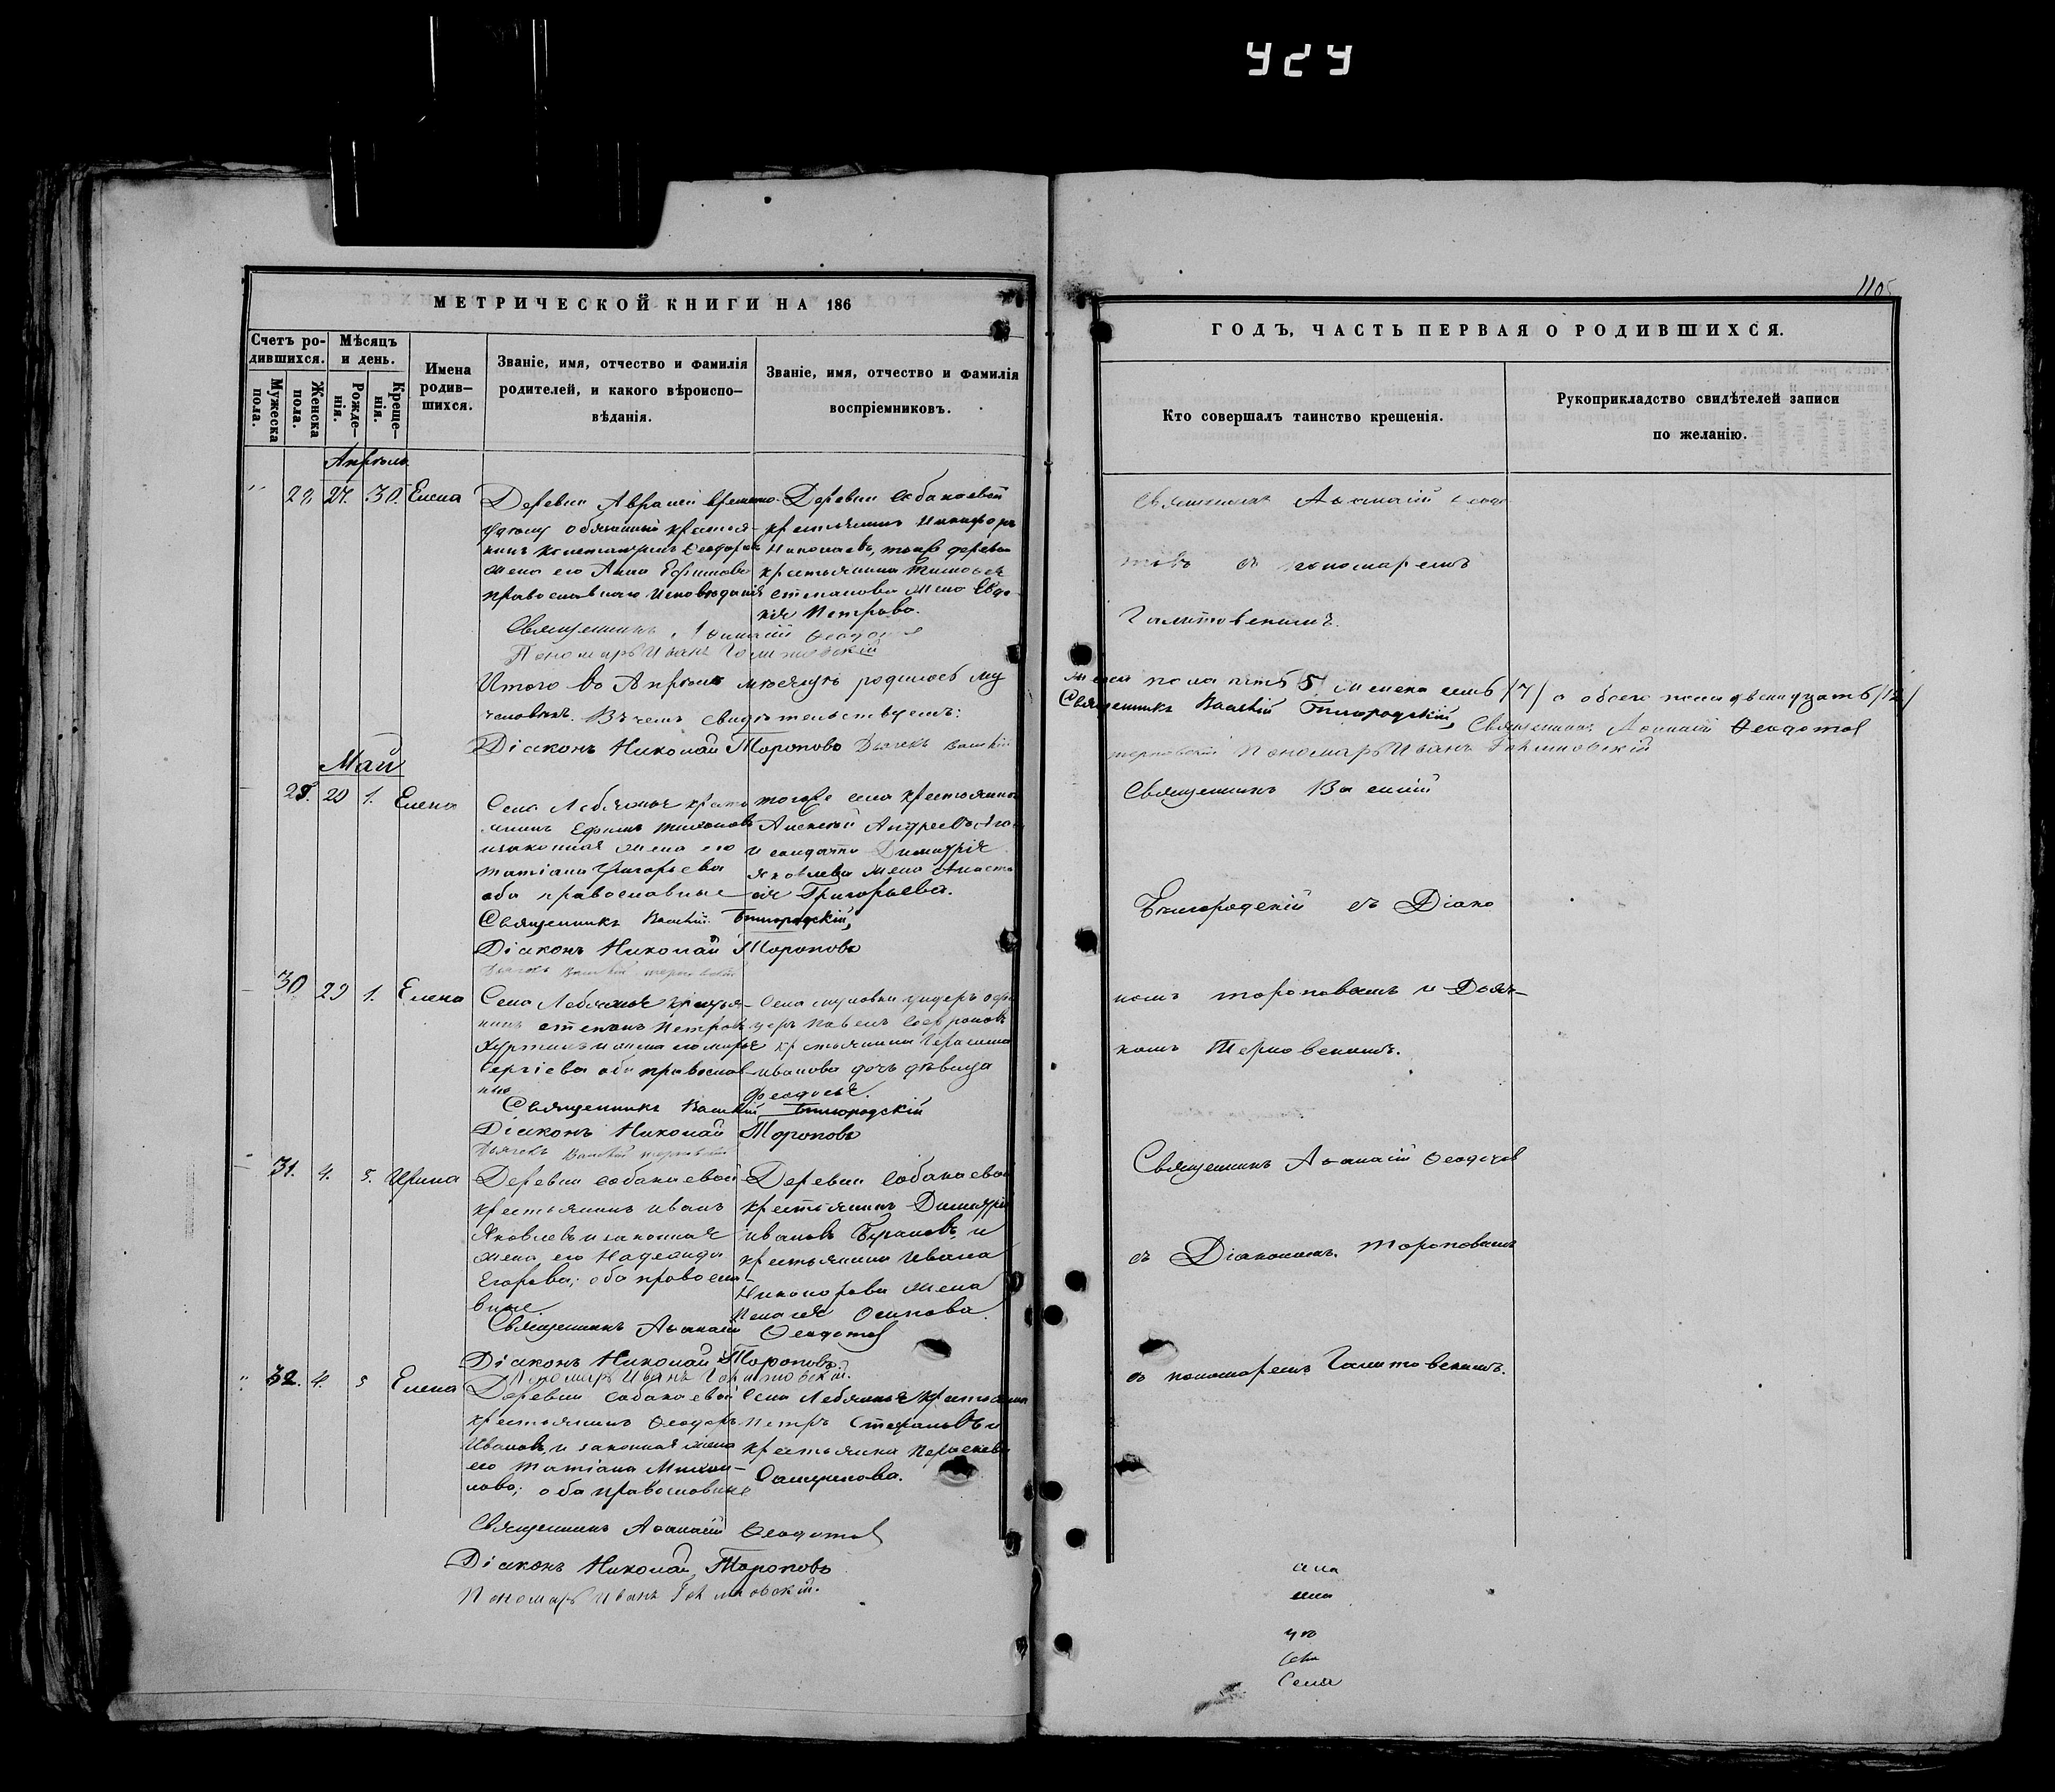 929
1105
МЕТРИЧЕСКОЙ КНИГИ НА 186
Счетъ родившихся.
Мужеска пола.
Женска пола.
Мѣсяцъ и день.
Рожденія.
Крещенія.
Имена родившихся.
Званіе, имя, отчество и фамилія
родителей, и какого вѣроиспо-
вѣданія.
Званіе, имя, отчество и фамилія
воспріемниковъ.
Апрѣль
28 27. 30. Елена
Деревни
обязанный крестья-
нинъ Константинъ Ѳеодоровъ
жена его Анна Ефимова
православнаго исповѣданія
Деревни Собакаевой
крестьянинъ Никифоръ
Николаевъ, тойже деревни
крестьянина Тимоѳея
Степанова жена Евдо-
кія Петрова.
Священникъ Аѳанасій Ѳеодотов
Пономарь Иванъ Голитовскій
Итого во Апрѣле мѣсяцѣ родилось му
человѣкъ. Въ чемъ свидѣтельствуемъ:
Діаконъ Николай Тороповъ Дьячекъ Василій
Май
29. 29 1. Елена
Села Лебяжья кресть
янинъ Ефимъ Тихоновъ
и законная жена его
Татіана Григорьева
оба православные
тогоже села крестьянинъ
Алексѣй Андреевъ
и солдата Димитрія
Яковлева жена Анаста
сія Григорьева.
Священникъ Василій Бѣлгородскій,
Діаконъ Николай Тороповъ
Дьячекъ Василій Терновскій
30 29 1. Елена
Села Лебяжья крестья-
нинъ Степанъ Петровъ
и жена его Марья
Сергіева оба православ-
ные
Села ундеръ офи
церъ Павелъ Софроновъ
крестьянина Герасима
Иванова дочь дѣвица
Феодосья.
Священникъ Василій Бѣлгородскій
Діаконъ Николай Тороповъ
Дьячекъ Василій Терновскій
31. 4. 5. Ирина
Деревни Собакаевой
крестьянинъ Иванъ
Яковлевъ и законная
жена его Надежда
Егорова; оба правосла-
вные
Деревни Собакаевой
крестьянинъ Димитрій
Ивановъ и
крестьянина Ивана
Никонорова жена
Пелагея Осипова
Священникъ Аѳанасій Ѳеодотов
Діаконъ Николай Тороповъ.
Пономарь Иванъ Голитовскій.
32. 4. 5 Елена
Деревни Собакаевой
крестьянинъ Ѳеодоръ
Ивановъ и законная жена
его Татіана Михаи-
лова; оба православные
Села Лебяжья крестьянинъ
Петръ Стефановъ и
крестьянка Параскева
Священникъ Аѳанасій Ѳеодотов
Діаконъ Николай Тороповъ
Пономарь Иванъ Голитовскій.
ГОДЪ, ЧАСТЬ ПЕРВАЯ О РОДИВШИХСЯ.
Кто совершалъ таинство крещенія.
Рукоприкладство свидѣтелей записи
по желанію.
Священникъ Аѳанасій Ѳеодо
товъ съ пономаремъ
Голитовскимъ.
жеска пола пять /5/ женска семь /7/ а обоего пола двенадцать /12/
Священникъ Василій Бѣлгородскій, Священникъ Аѳанасій Ѳеодотов
Терновскій Пономарь Иванъ Голитовскій
Священникъ Василій
Бѣлгородскій съ Діако
номъ Тороповымъ и Дьяч-
комъ Терновскимъ.
Священникъ Аѳанасій Ѳеодотов
съ Діакономъ Тороповымъ
и пономаремъ Голитовскимъ.